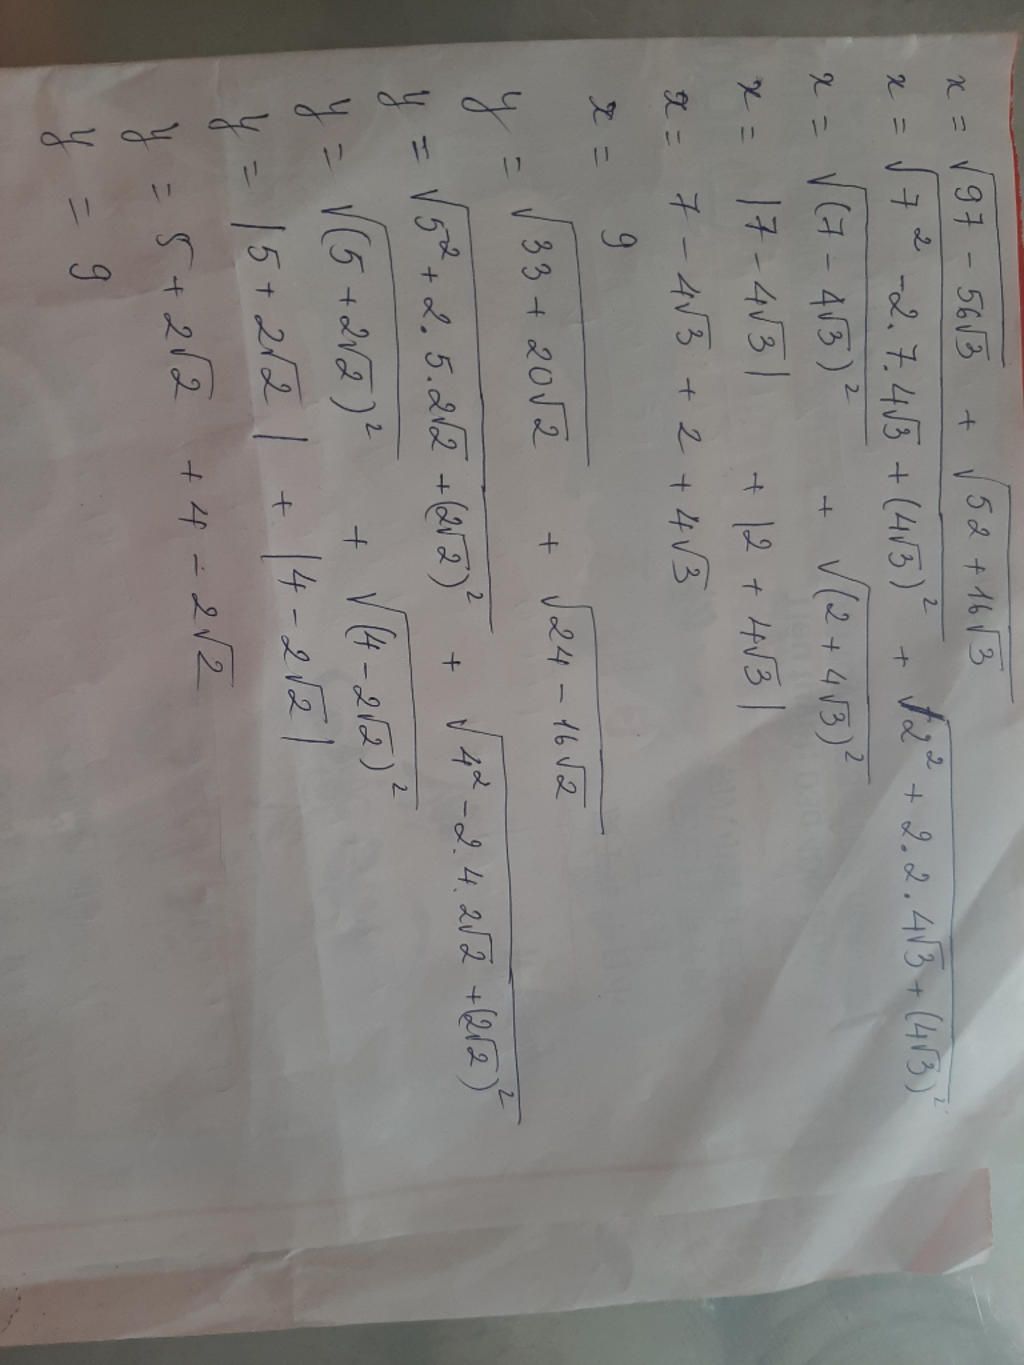 x = √97 - 56√3 + √52 + 16√3
x = √7² - 2.7.4√3 + (4√3)² + √2² + 2.2.4√3 + (4√3)²
x = √(7 - 4√3)² + √(2 + 4√3)²
x = |7 - 4√3| + |2 + 4√3|
x = 7 - 4√3 + 2 + 4√3
x = 9
y = √33 + 20√2 + √24 - 16√2
y = √5² + 2.5.2√2 + (2√2)² + √4² - 2.4.2√2 + (2√2)²
y = √(5 + 2√2)² + √(4 - 2√2)²
y = |5 + 2√2| + |4 - 2√2|
y = 5 + 2√2 + 4 - 2√2
y = 9